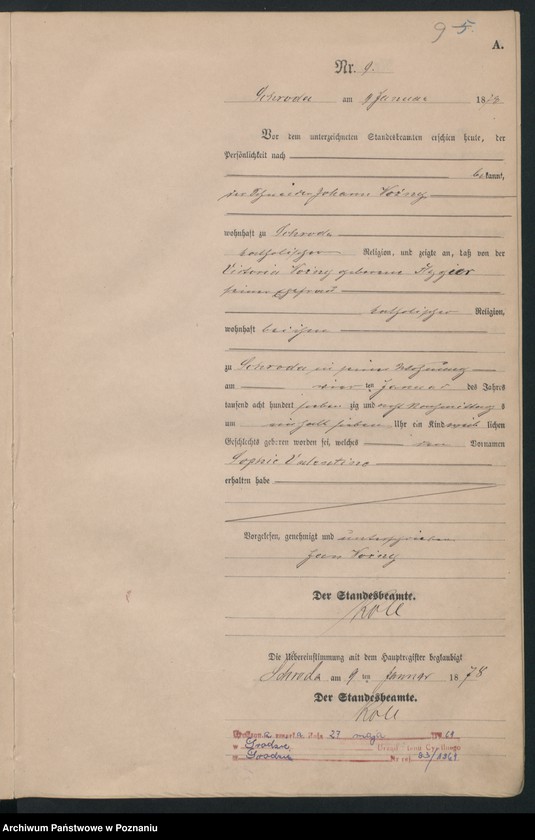 9 5
A.
Nr. 9.
Schroda am 9 Januar 1878
Vor dem unterzeichneten Standesbeamten erschien heute, der
Persönlichkeit nach
bekannt,
der Schneider Johann
wohnhaft zu Schroda
katholischer Religion, und zeigte an, daß von der
Victoria geborene
seiner Ehefrau
katholischer Religion,
wohnhaft bei ihm
zu Schroda in seiner Wohnung
am ten Januar des Jahres
tausend acht hundert sieben zig und acht Nachmittags
um ein halb sieben Uhr ein Kind weib lichen
Geschlechts geboren worden sei, welches den Vornamen
Sophie Valentine
erhalten habe
Vorgelesen, genehmigt und unterschrieben
Jean
Der Standesbeamte.
Koll
Die Uebereinstimmung mit dem Hauptregister beglaubigt
Schroda am 9 ten Januar 1878
Der Standesbeamte.
Koll
zmarła dnia 27 maja 1961
w Środzie Urząd Stanu Cywilnego
w Środzie Nr rej. 53/1961
Archiwum Państwowe w Poznaniu